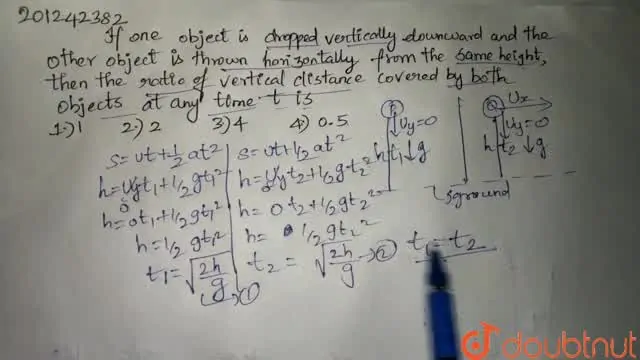 201242382
If one object is dropped vertically downward and the
other object is thrown horizontally from the same height,
then the ratio of vertical distance covered by both
objects at any time t is
1.) 1 2.) 2 3) 4 4) 0.5
Uy=0
h t1 ↓g
Ux
Uy=0
h t2 ↓g
ground
s=ut+1/2at²
h=Uyt1+1/2gt1²
0
h=0t1+1/2gt1²
h=1/2gt1²
t1=√2h/g →①
s=ut+1/2at²
h=Uyt2+1/2gt2²
0
h=0t2+1/2gt2²
h= 1/2gt2²
t2=√2h/g→②
t1=t2
doubtnut